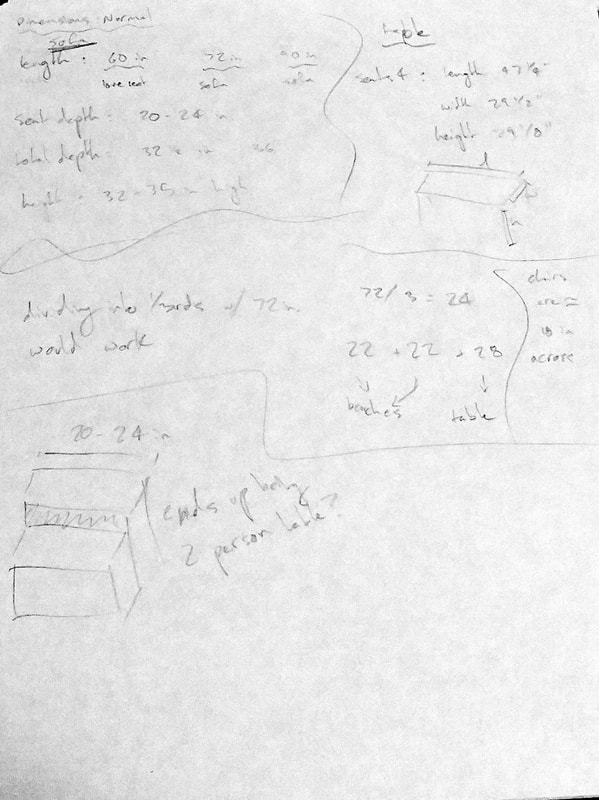 Dimensions Normal
sofa
length : 60 in 72 in 90 in
love seat sofa sofa
seat depth : 20 - 24 in
total depth : 32 in 36
height : 32 - 35 in high
table
seats 4 : length 47 1/4"
width 29 1/2"
height 29 1/8"
l
w
h
dividing into 1/3rds w/ 72 in.
would work
72/3 = 24
22 + 22 + 28
benches table
chairs
are ≈
18 in
across
20 - 24 in
ends up being
2 person table?